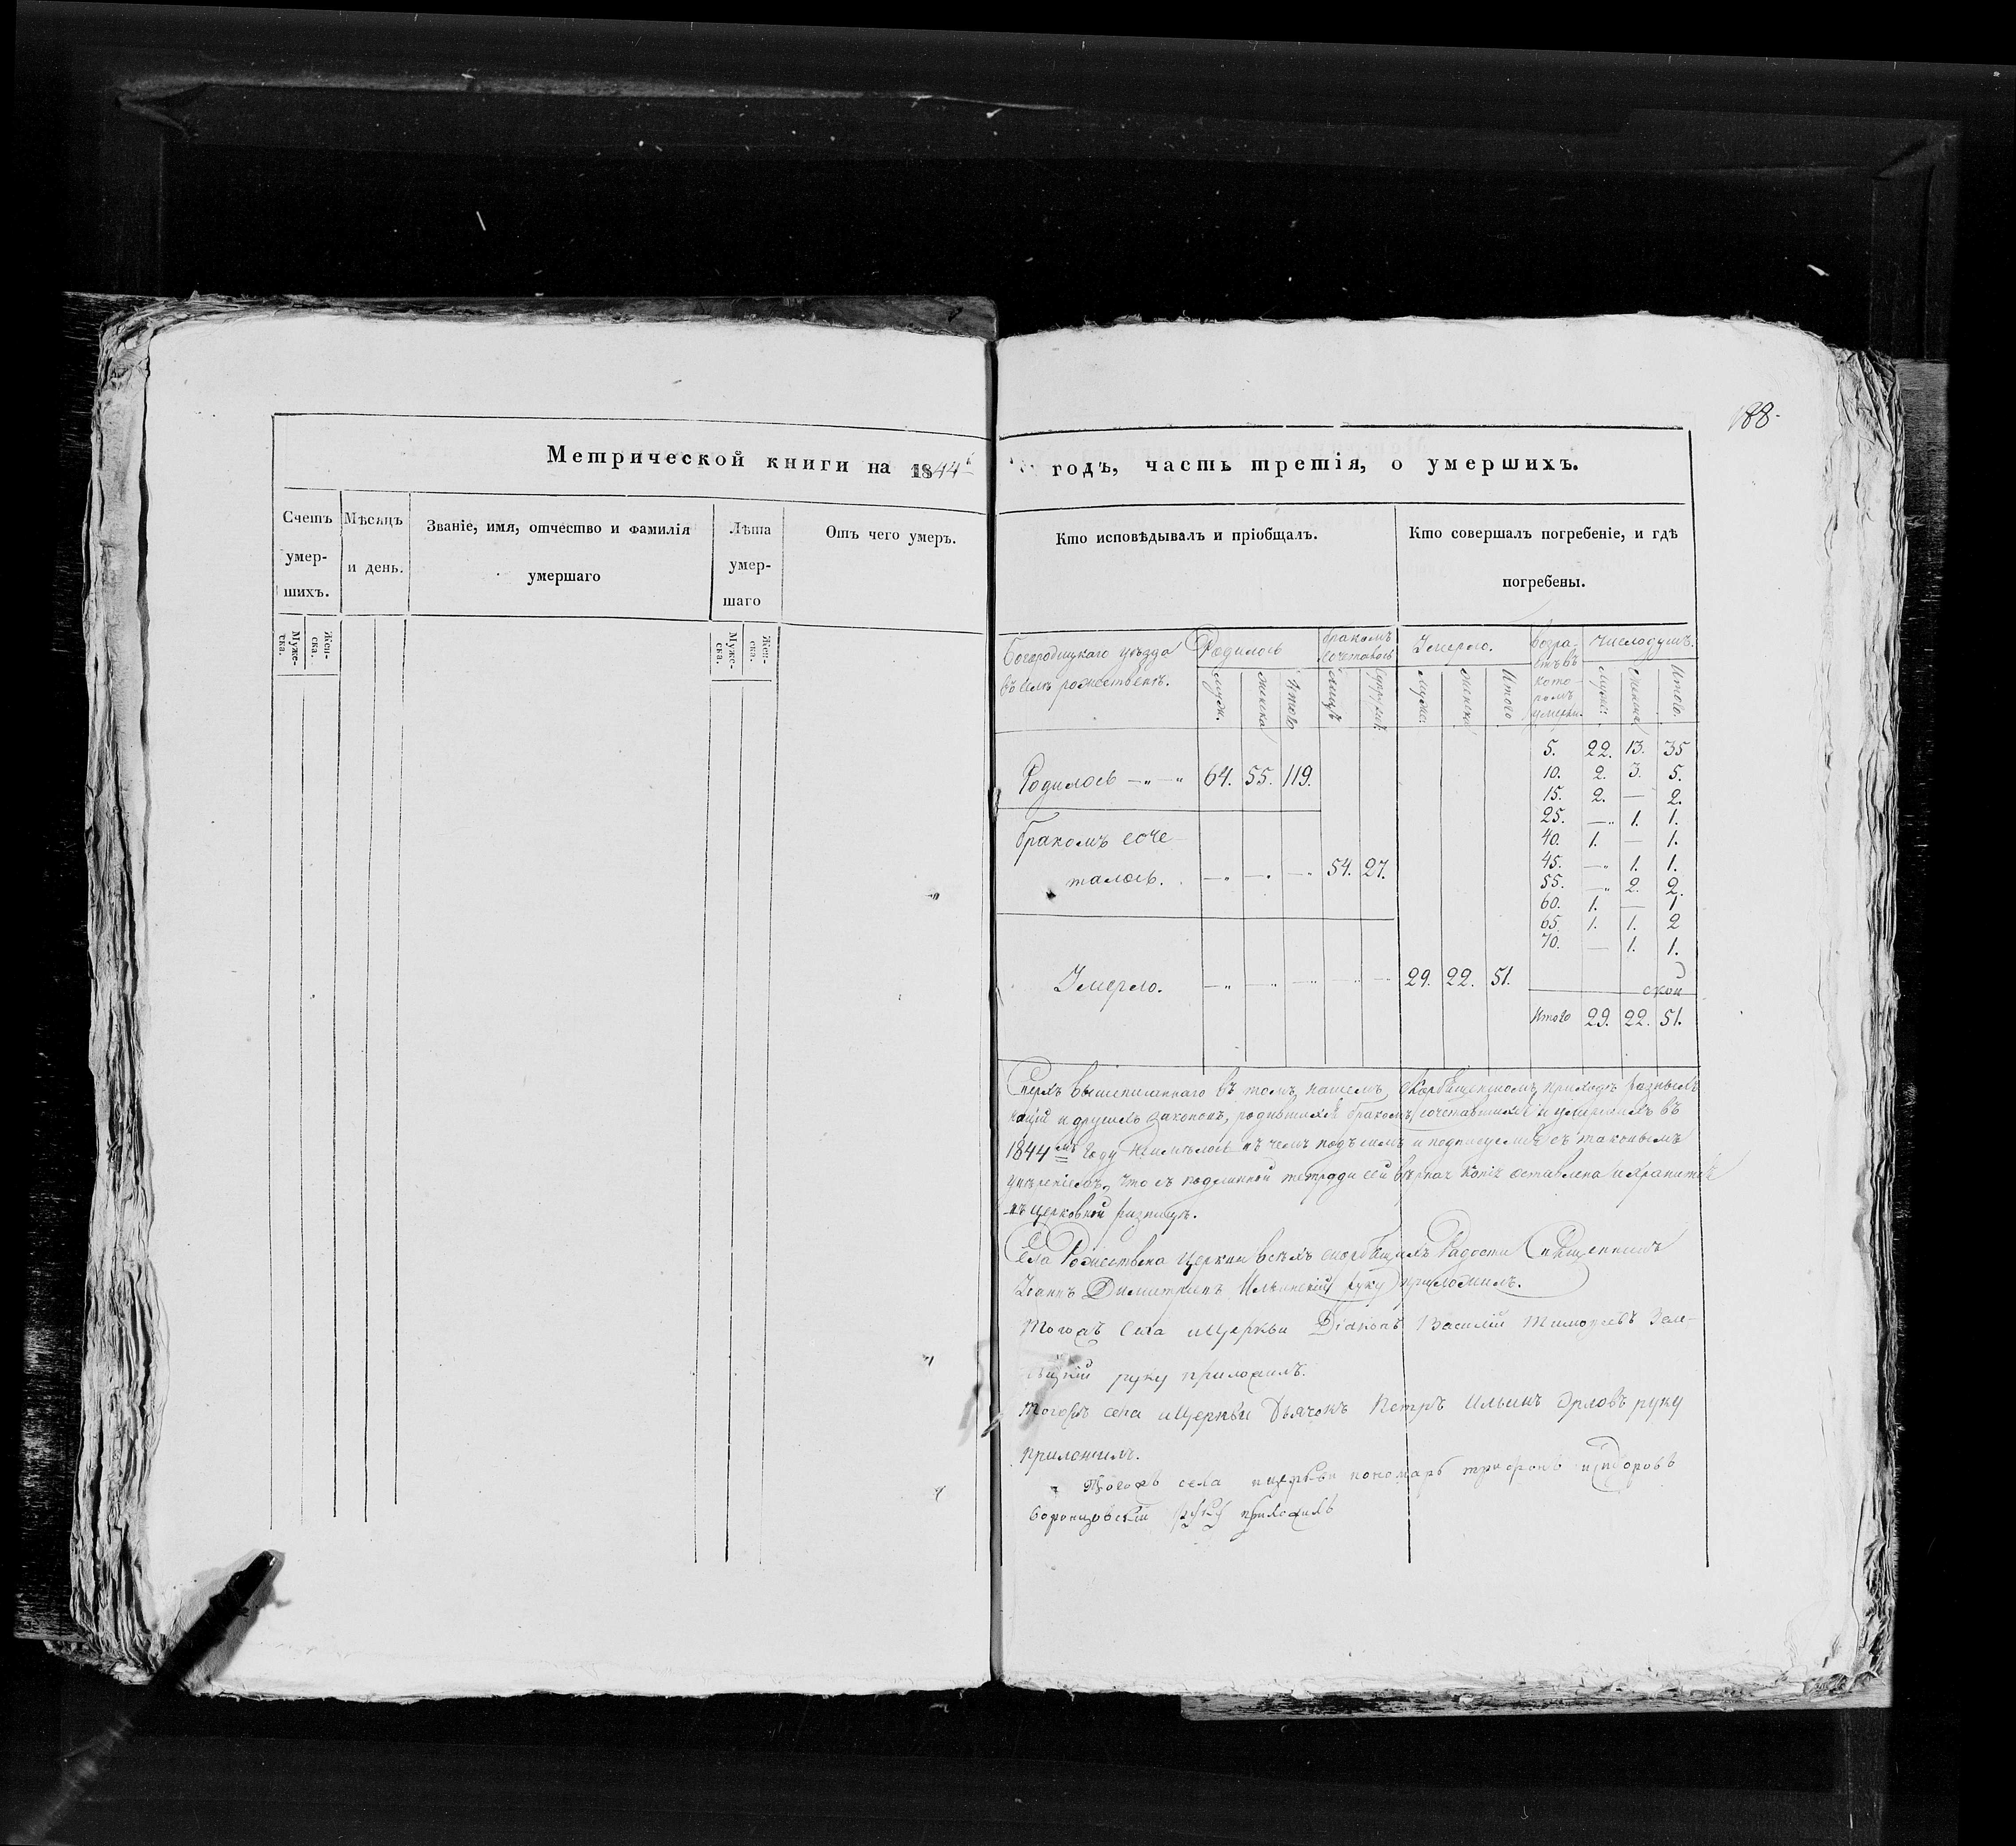 188.
Метрической книги на 1844й годъ, часть третія, о умершихъ.
Счетъ умер-шихъ.
Муже-ска.
Жен-ска.
Мѣсяцъ и день.
Званіе, имя, отчество и фамилія умершаго
Лѣта умер-шаго
Муже-ска.
Жен-ска.
Отъ чего умеръ.
Кто исповѣдывалъ и пріобщалъ.
Кто совершалъ погребеніе, и гдѣ погребены.
Богородицкаго уѣзда Родилось бракомъ сочеталось Умерло. Возра- Число душъ.
въ селѣ рожественѣ. муж. женска Итого лицъ супруж. муже. женска Итого кото-ромъ умерли. муже. женска Итого.
Родилось 64. 55. 119.
бракомъ соче
талось. 54. 27.
Умерло. 29. 22. 51.
5. 22. 13. 35
10. 2. 3. 5.
15. 2. — 2.
25. — 1. 1.
40. 1. — 1.
45. — 1. 1.
55. — 2. 2.
60. 1. — 1
65. 1. 1. 2
70. — 1. 1.
Итого 29. 22. 51.
Сверхъ вышеписаннаго въ томъ нашемъ приходѣ
и другихъ законовъ, родившихся бракомъ сочетавшихся и умершихъ въ
1844мъ году неимѣлось въ чемъ подъ симъ и подписуемся съ таковымъ
увѣреніемъ, что съ подлинной тетради сей вѣрная копія оставлена и хранится
въ церковной ризницѣ.
Села Рожествена Церкви всѣхъ скорбящихъ Радости Священникъ
Іоаннъ Димитріевъ Ильинскій руку приложилъ.
Тогожъ Села и Церкви Діаконъ Василій Тимофеевъ
руку приложилъ.
Тогожъ села и Церкви Дьячокъ Петръ Ильинъ Орловъ руку
приложилъ.
Тогожъ села и церкви пономарь трифонъ исидоровъ
Воронцовскій руку приложилъ